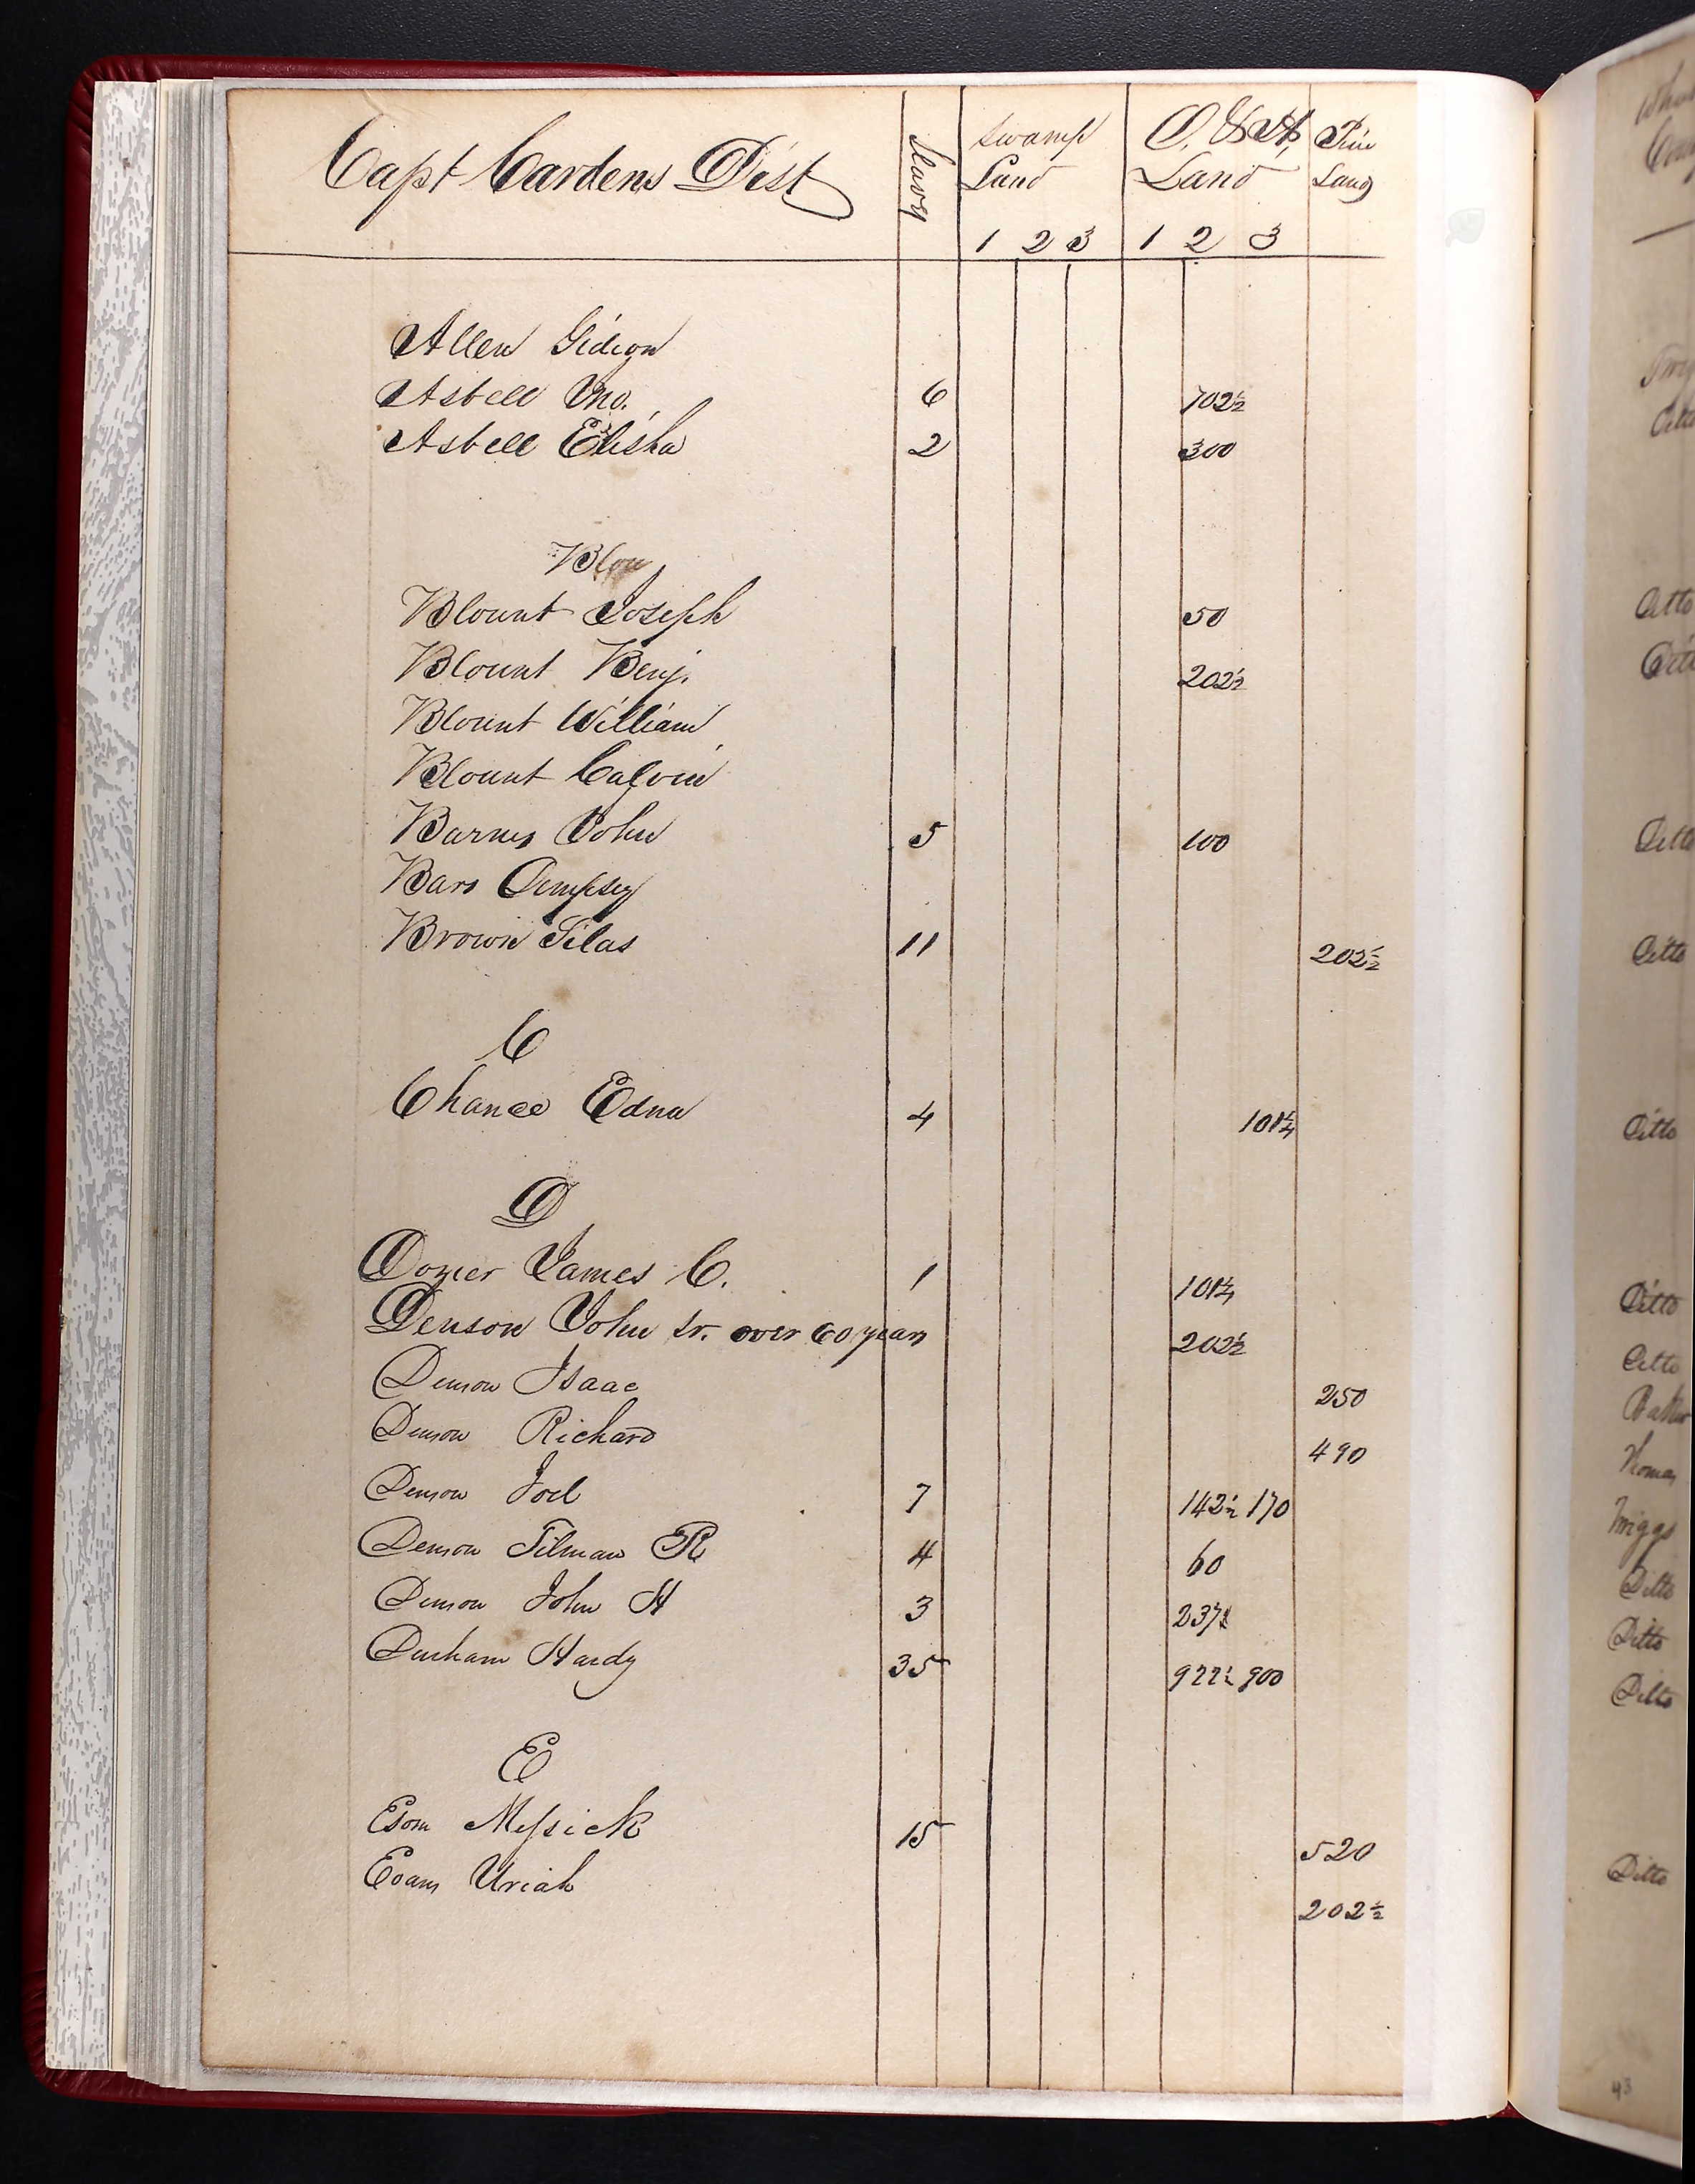 Capt Cardens Dist Slaves Swamp Land O. & H. Land Pine Land
1 2 3 1 2 3
Allen Gideon
Asbell Jno. 6 702½
Asbell Elisha 2 300
Blou
Blount Joseph 50
Blount Benj. 202½
Blount William
Blount Calvin
Barnes John 5 100
Bars Dempsey
Brown Silas 11 202½
C
Chance Edna 4 101¼
D
Dozier James C. 1 101¼
Denson John Sr. over 60 years 202½
Denson Isaac 250
Denson Richard 490
Denson Joel 7 142½ 170
Denson Tilman R 4 60
Denson John H 3
Durham Hardy 35 922½ 900
E
Esom Messick 15 520
Evans Uriah 202½
Ditto
Ditto
Ditto
Ditto
Ditto
Ditto
Ditto
Ditto
Thomas
Griggs
Ditto
Ditto
Ditto
Ditto
43